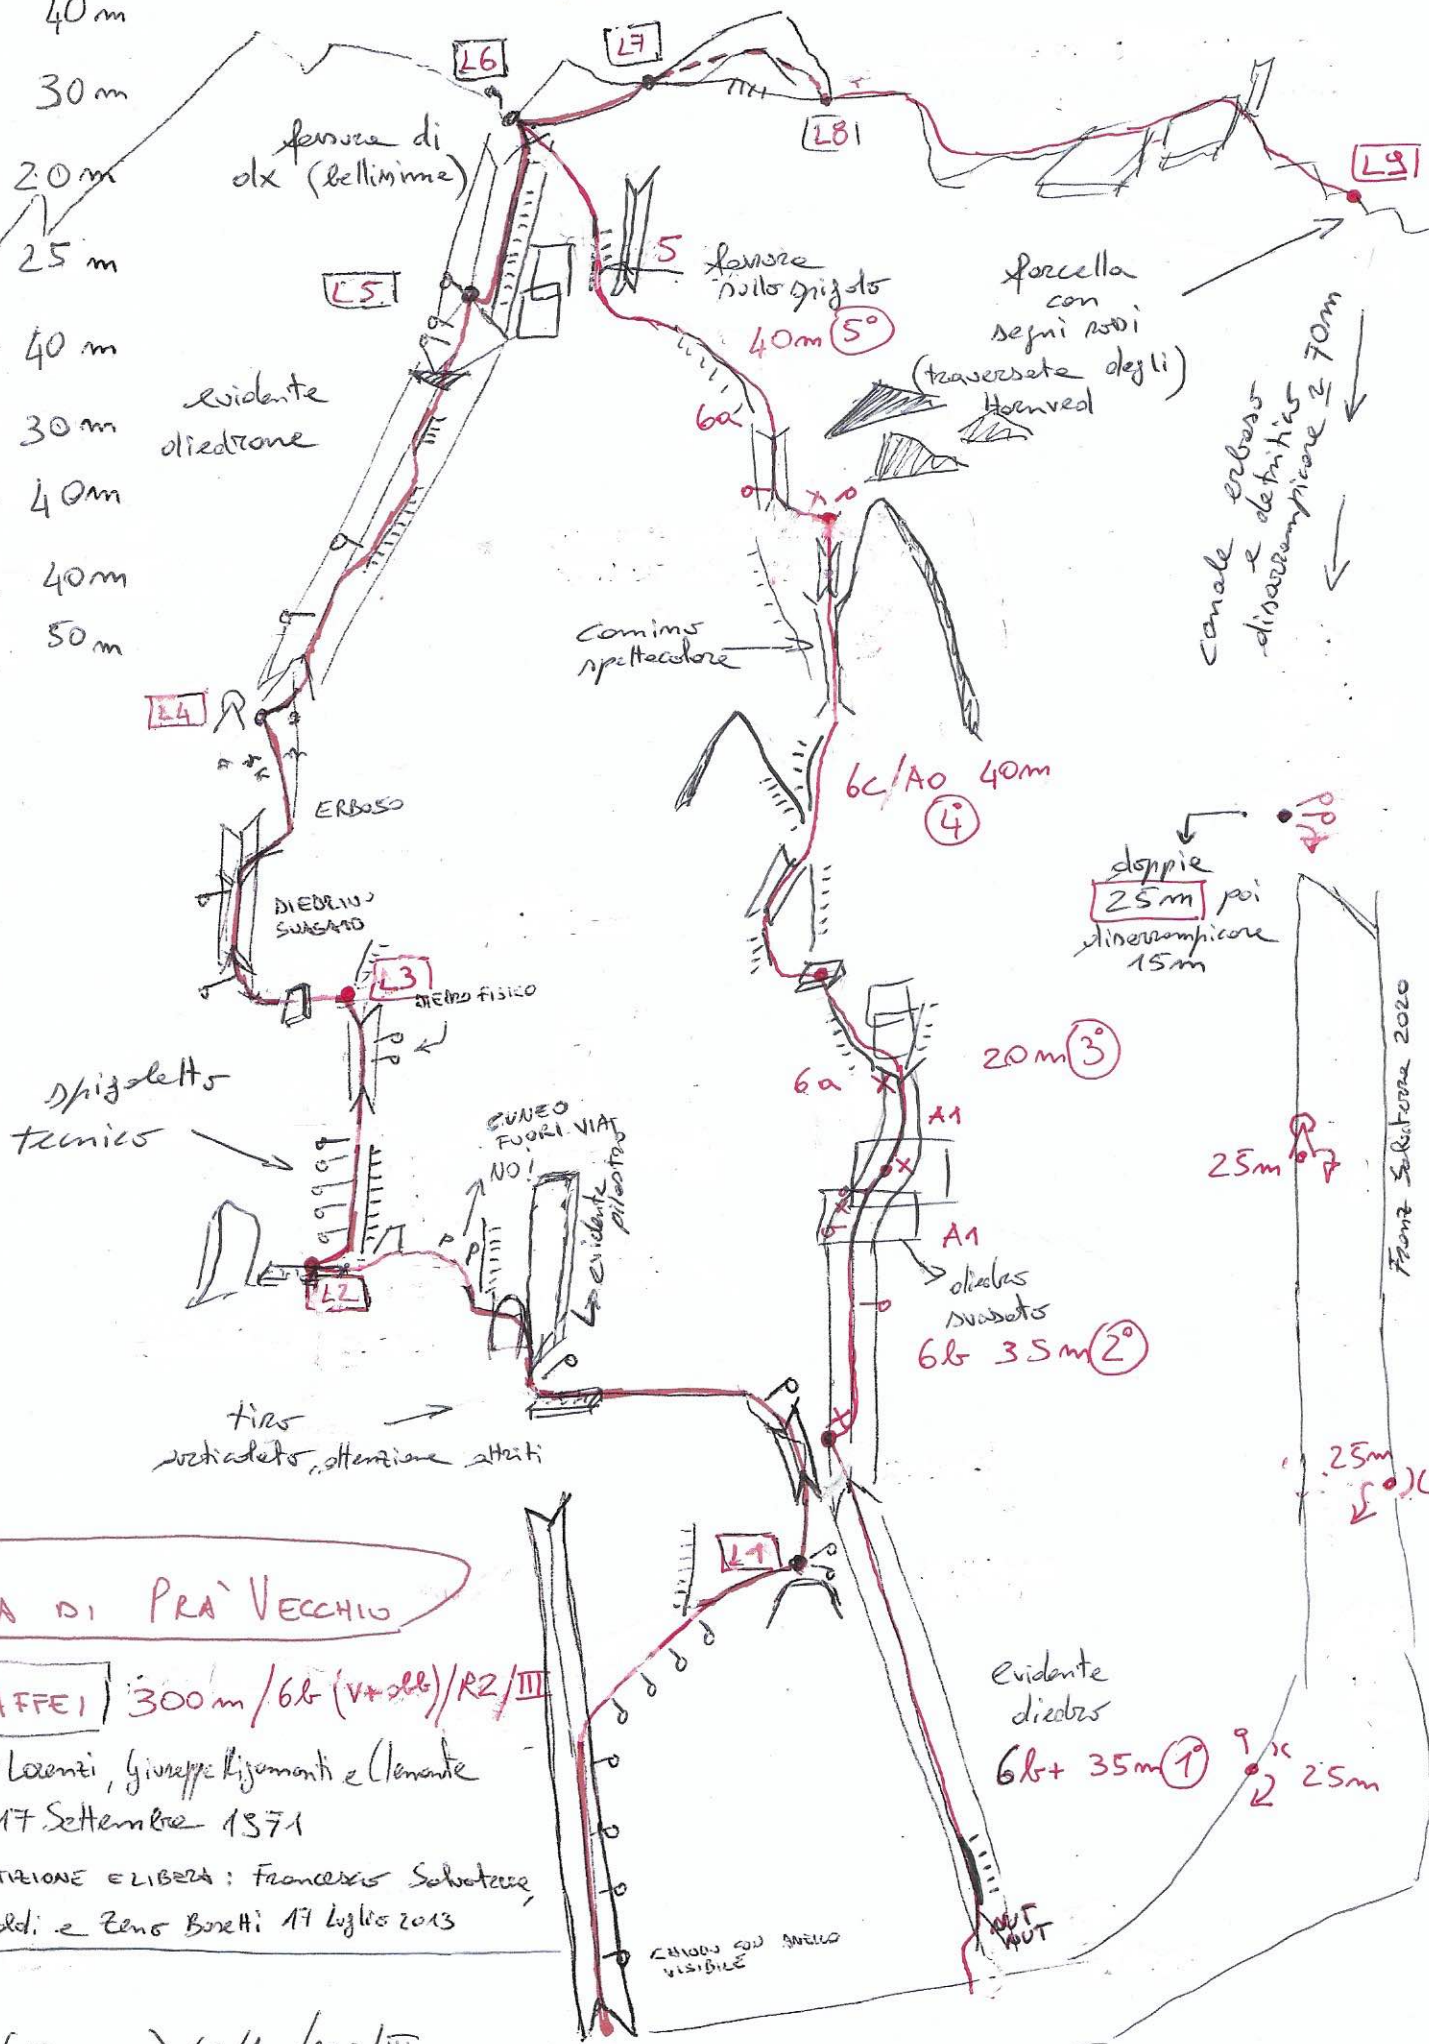 40m
30m
20m
25m
40m
30m
40m
40m
50m
L6
L7
L8
L9
fessura di
dx (bellissima)
L5
5
fessura
sullo spigolo
40m 5°
forcella
con
segni rossi
(traversata degli)
Hornved
canale erboso
e detritico
disarrampicare ≥ 70m
evidente
diedrone
6a
camino
spettacolare
L4
ERBOSO
6c/A0 40m
4°
doppie
25m poi
disarrampicare
15m
DIEDRINO
SVASATO
L3
DIEDRO FISICO
20m 3°
6a
A1
spigoletto
tecnico
CUNEO
FUORI VIA
NO!
evidente
pilastro
25m
Franz Salvaterra 2020
L2
A1
diedro
svasato
6b 35m 2°
tiro
articolato, attenzione attriti
25m
L1
A DI PRA' VECCHIO
AFFEI 300m/6b (V+ obb)/R2/III
Lorenzi, Giuseppe Rigamonti e Clemente
17 Settembre 1971
TIZIONE E LIBERA: Francesco Salvaterra,
oldi e Zeno Bosetti 17 Luglio 2013
evidente
diedro
6b+ 35m 1°
25m
NUT
NUT
CHIODO CON ANELLO
VISIBILE